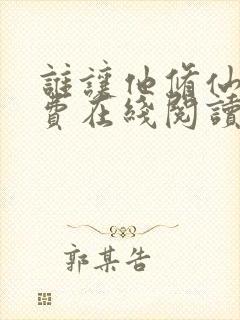 誰讓他修仙
費在綫閱讀
郭某告